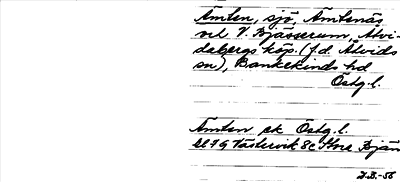 Åmten, sjö, Åmtsnäs
vid V. Bjässerum, Åtvi-
dabergs köp. (f.d. Åtvids
sn), Bankekinds hd
Östg. l.
Åmten ek Östg. l.
Västervik Stora Bjän
J.B.-56